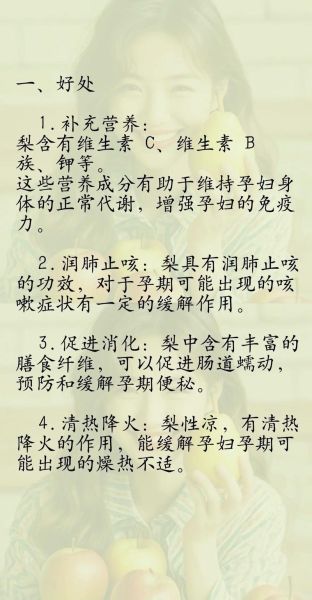 一、好处
1.补充营养：
梨含有维生素 C、维生素 B
族、钾等。
这些营养成分有助于维持孕妇身
体的正常代谢，增强孕妇的免疫
力。
2.润肺止咳：梨具有润肺止咳
的功效，对于孕期可能出现的咳
嗽症状有一定的缓解作用。
3.促进消化：梨中含有丰富的
膳食纤维，可以促进肠道蠕动，
预防和缓解孕期便秘。
4.清热降火：梨性凉，有清热
降火的作用，能缓解孕妇孕期可
能出现的燥热不适。